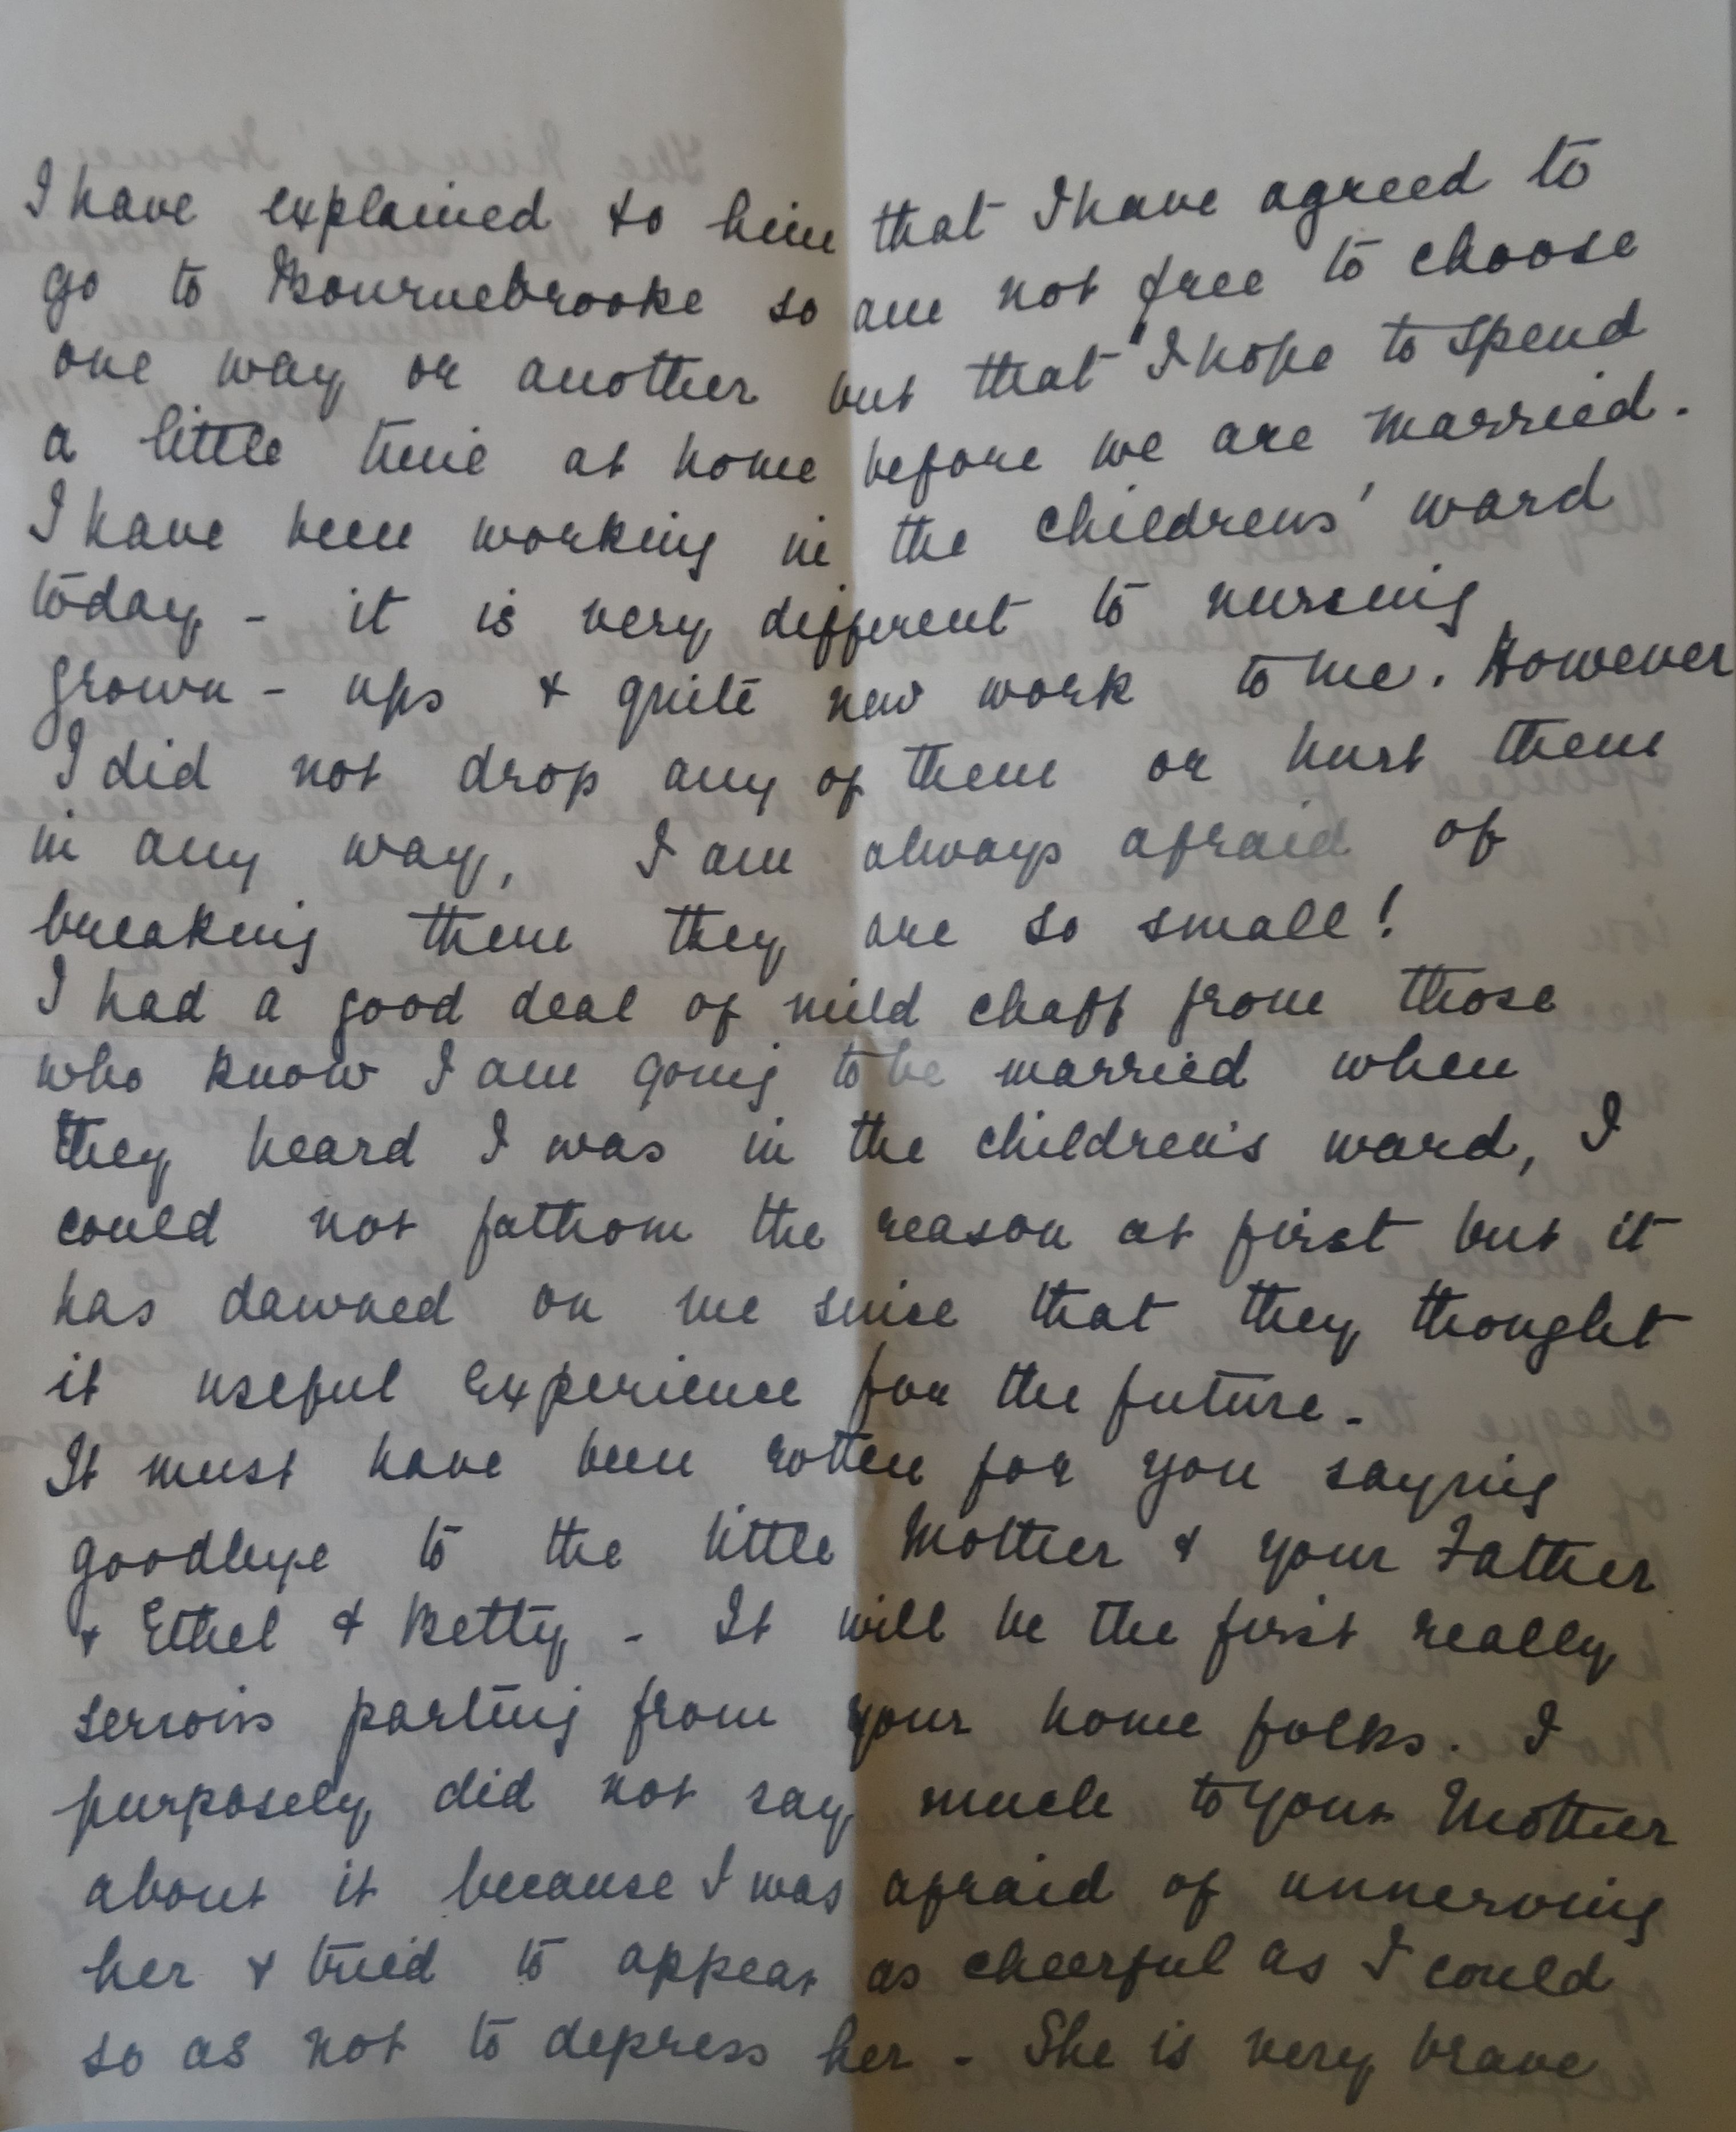 I have explained to him that I have agreed to
go to Bournebrooke so am not free to choose
one way or another but that I hope to spend
a little time at home before we are married.
I have been working in the childrens' ward
today - it is very different to nursing
grown - ups & quite new work to me. However
I did not drop any of them or hurt them
in any way, I am always afraid of
breaking them they are so small!
I had a good deal of mild chaff from those
who know I am going to be married when
they heard I was in the children's ward, I
could not fathom the reason at first but it
has dawned on me since that they thought
it useful experience for the future.
It must have been rotten for you saying
goodbye to the little Mother & your Father
& Ethel & Betty - It will be the first really
serious parting from your home folks. I
purposely did not say much to your Mother
about it because I was afraid of unnerving
her & tried to appear as cheerful as I could
so as not to depress her - She is very brave